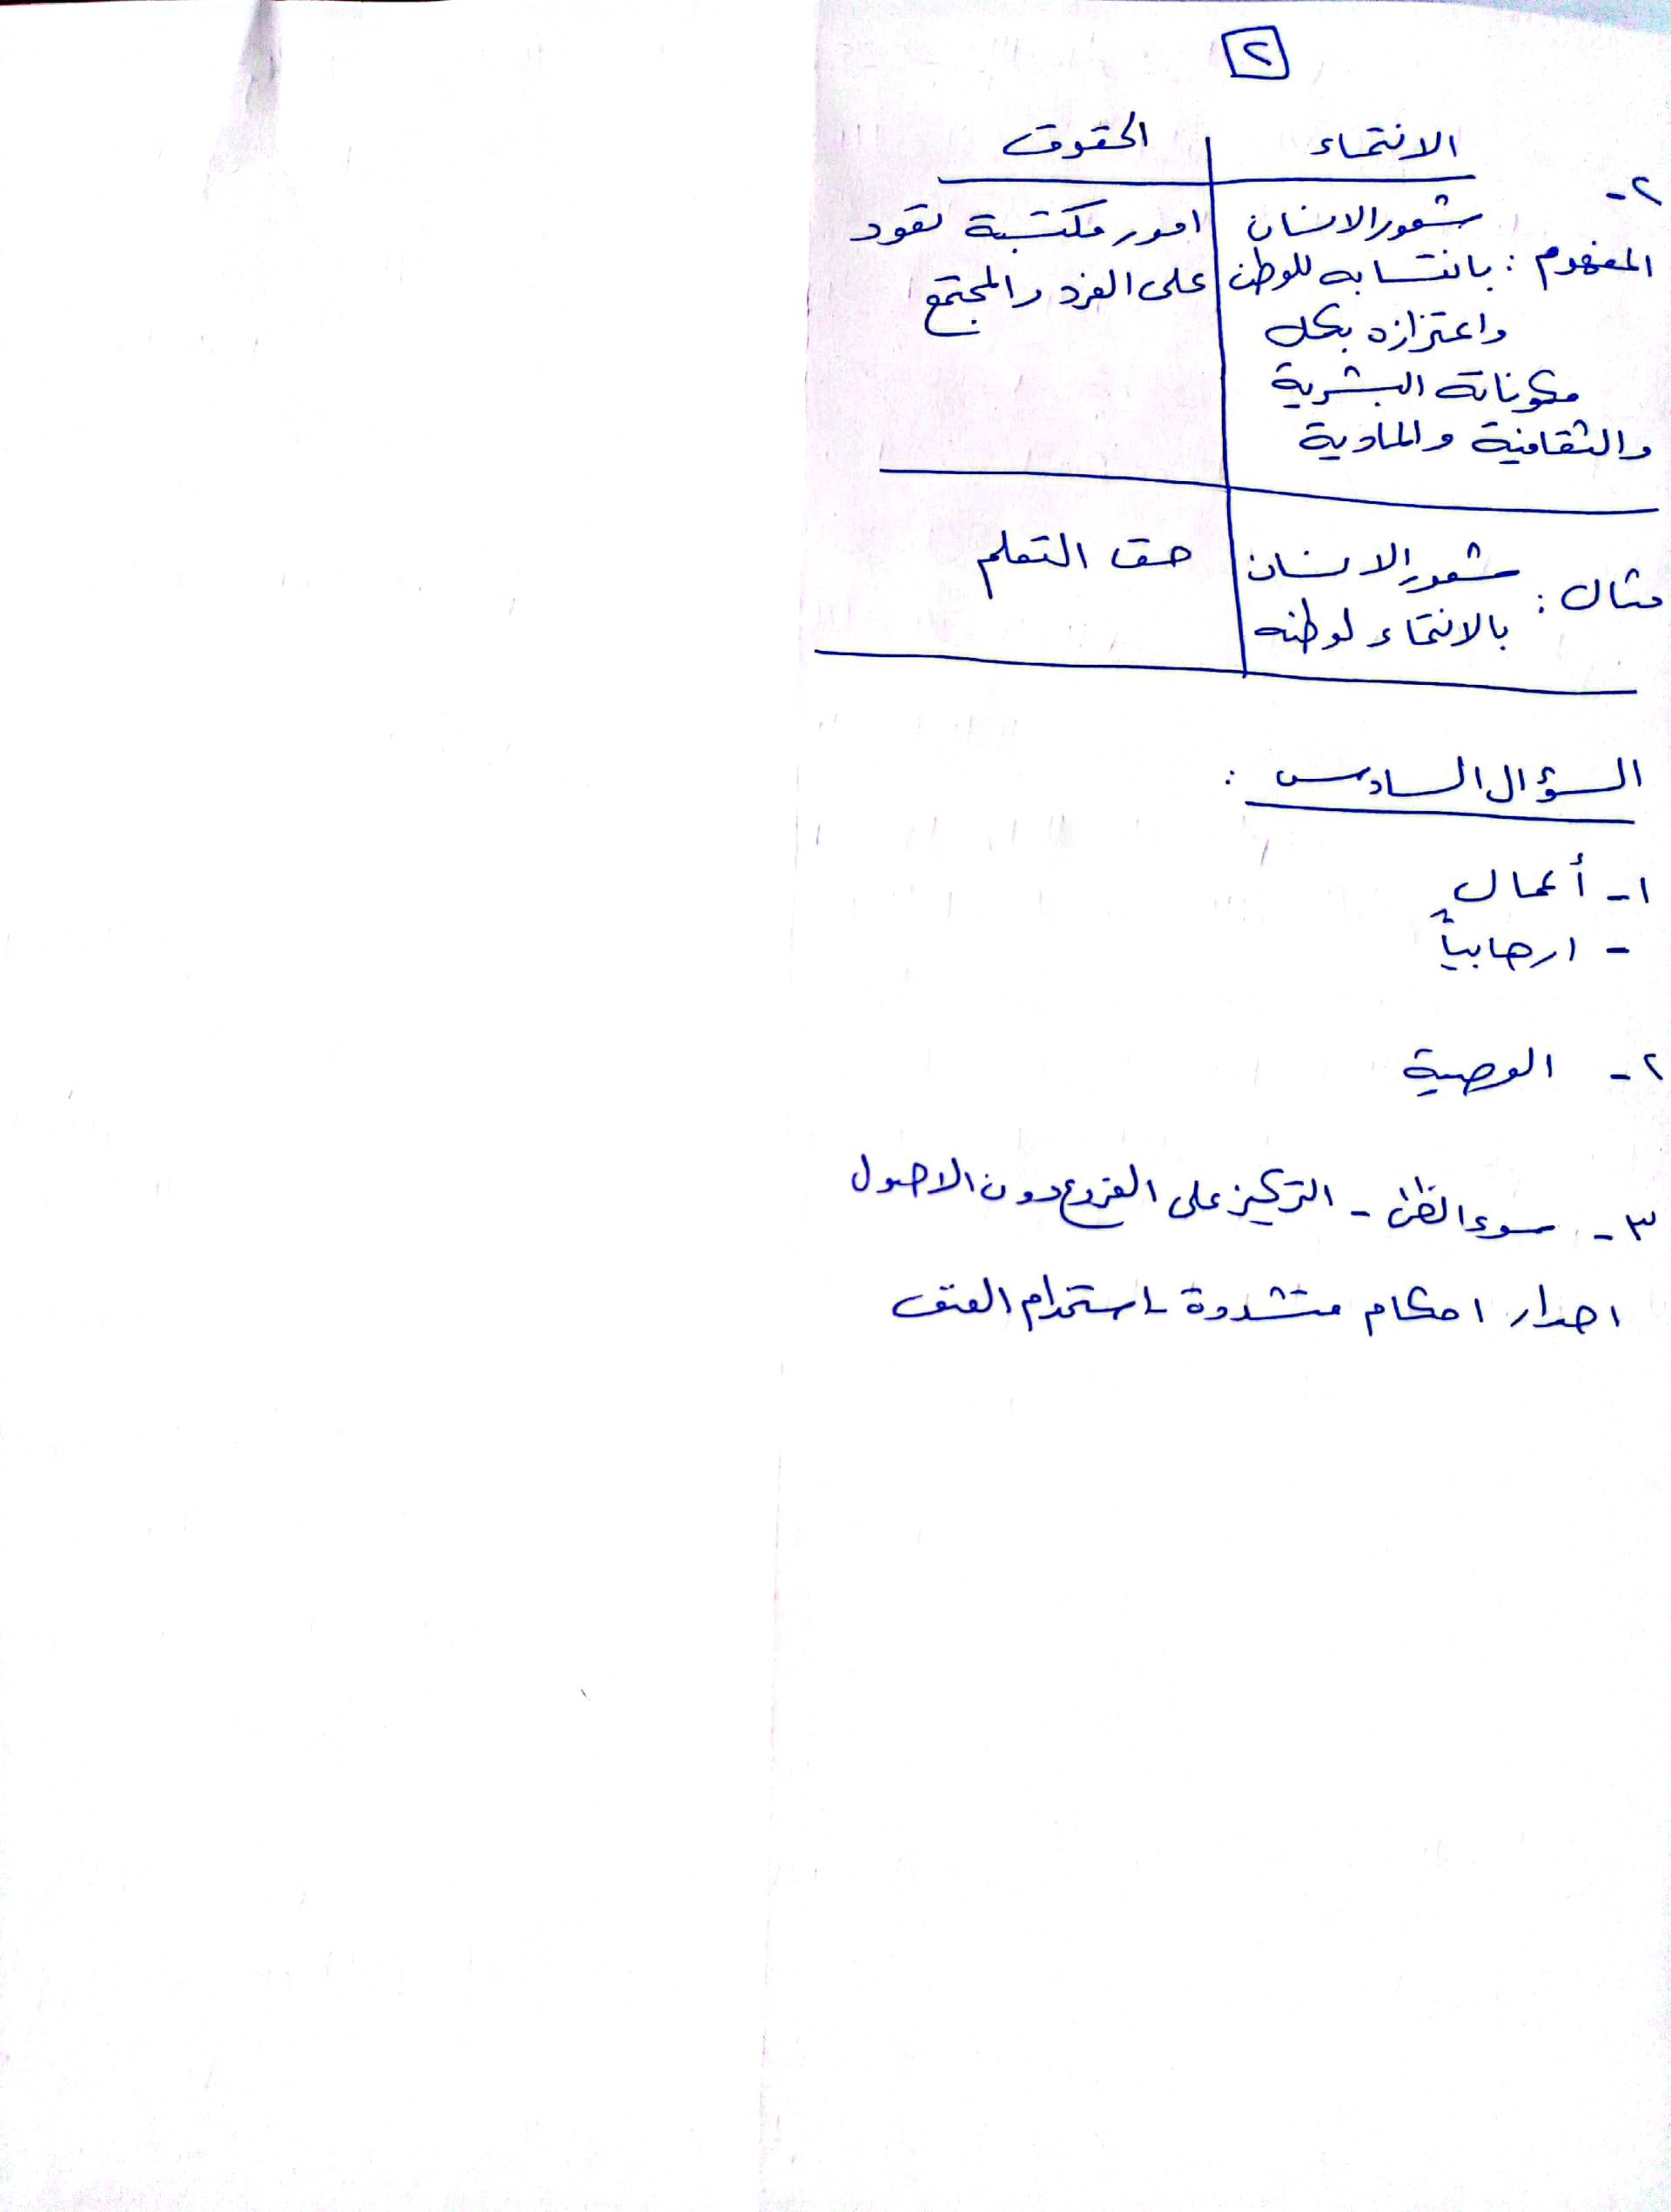 ٢
الانتماء | الحقوق
٢-
شعور الانسان | امور مكتسبة تعود
المفهوم : بانتسابه للوطن | على الفرد والمجتمع
واعتزازه بكل
مكوناته البشرية
والثقافية والمادية
مثال : شعور الانسان | حق التعلم
بالانتماء لوطنه
السؤال السادس :
١- أعمال
- ارهابياً
٢- الوصية
٣- سوء الظن - التركيز على الفروع دون الاصول
اصدار احكام متشددة - استخدام العنف